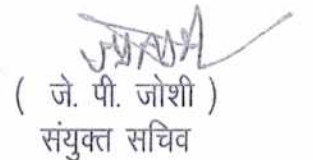 ( जे. पी. जोशी )
संयुक्त सचिव